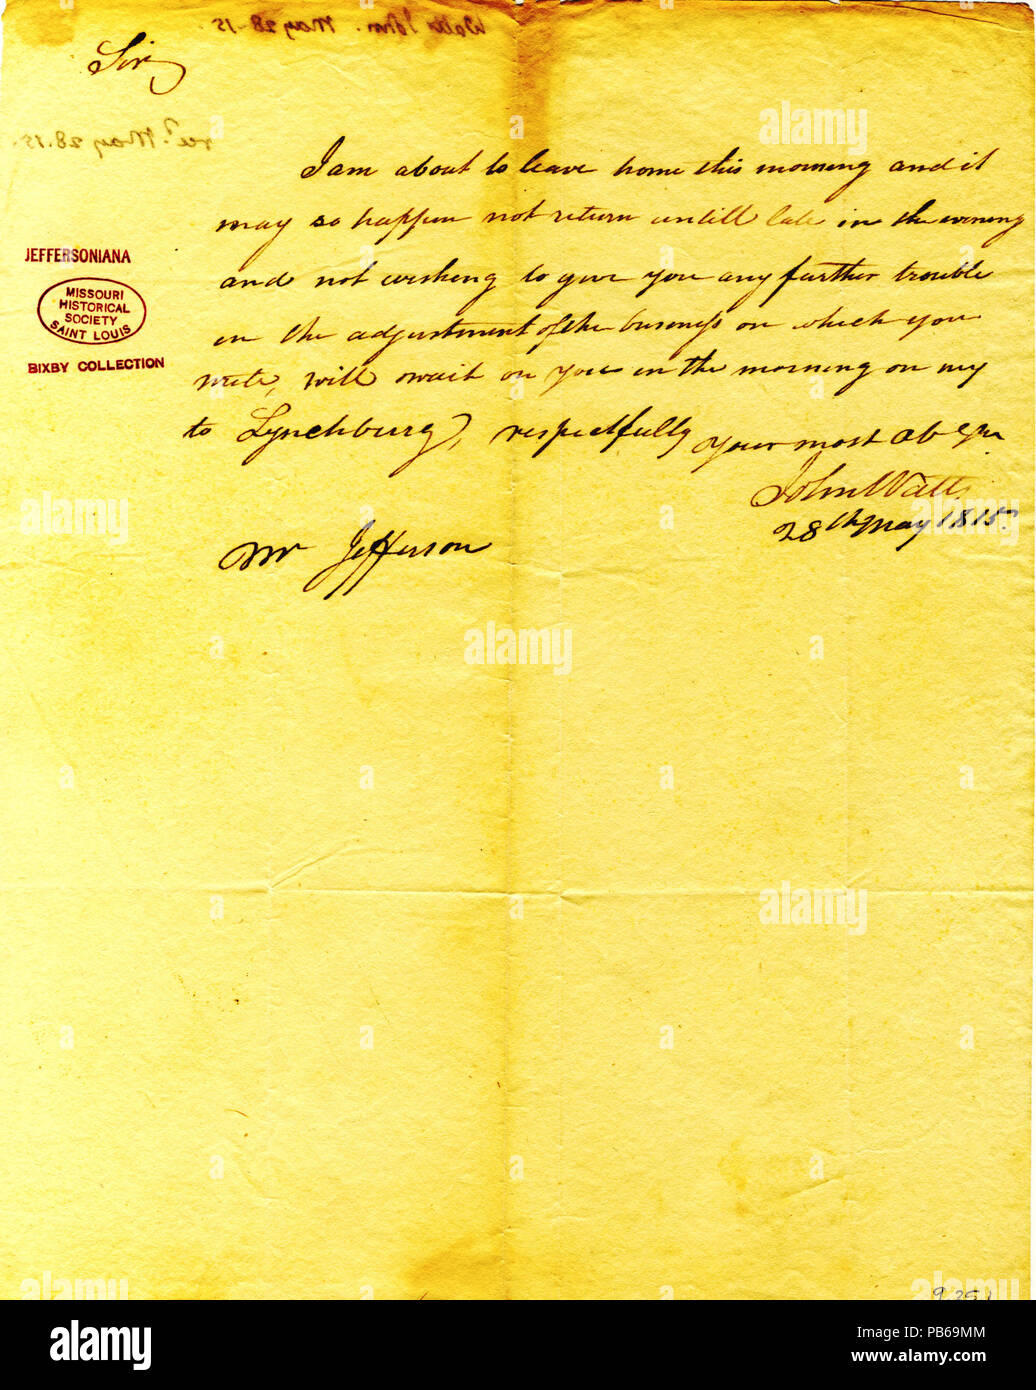 Sir
I am about to leave home this morning and it
may so happen not return untill late in the evening
and not wishing to give you any further trouble
in the adjustment of the business on which you
write, will wait on you in the morning on my
to Lynchburg, respectfully your most ob
John Watts
28th may 1815.
Mr Jefferson
JEFFERSONIANA
MISSOURI
HISTORICAL
SOCIETY
SAINT LOUIS
BIXBY COLLECTION
Watts John. May 28-15.
recd. May 28.15.
alamy
Image ID: PB69MM
www.alamy.com